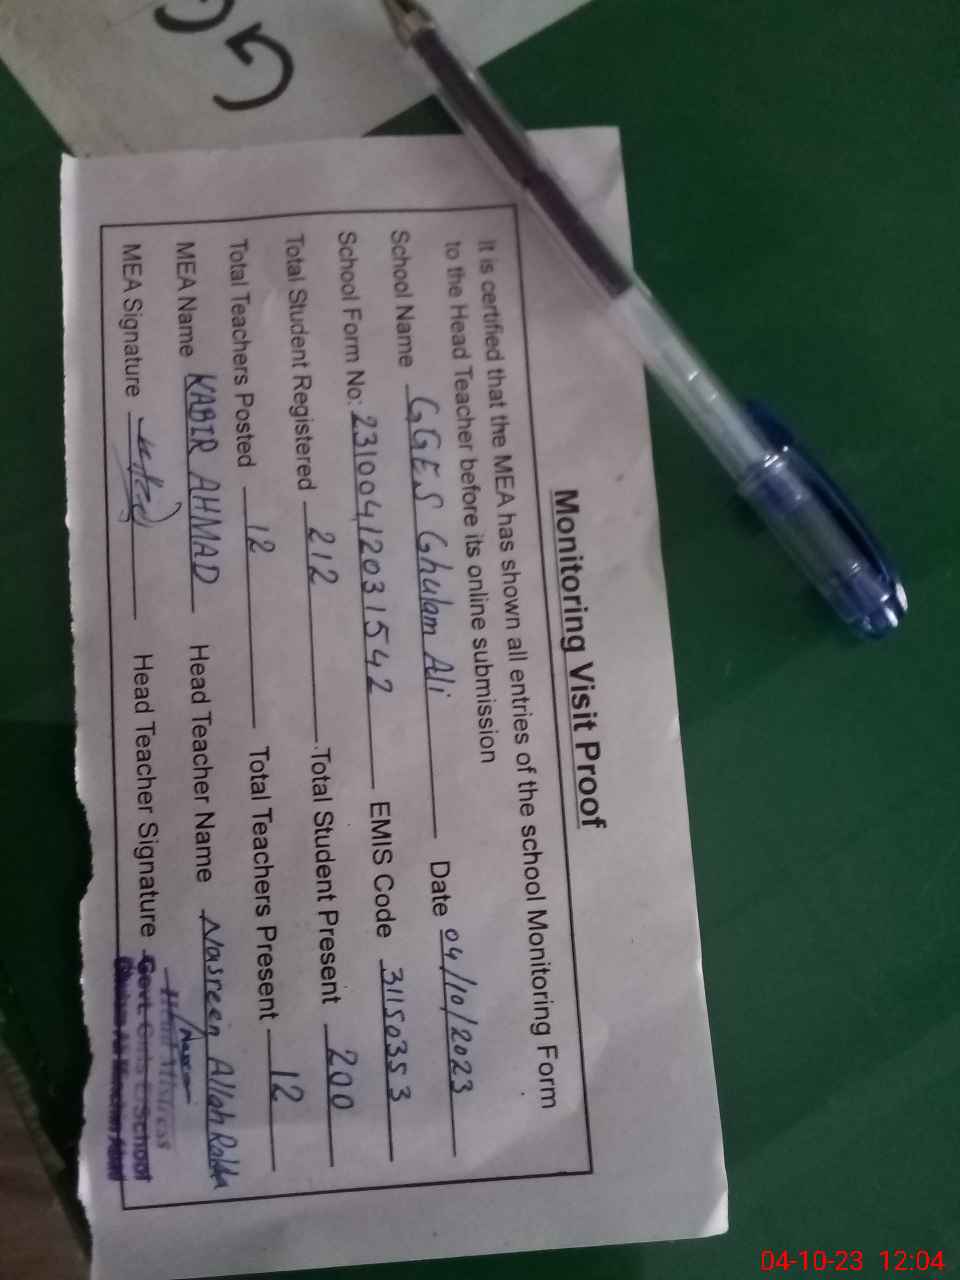 Monitoring Visit Proof
It is certified that the MEA has shown all entries of the school Monitoring Form
to the Head Teacher before its online submission
School Name GGES Ghulam Ali Date 04/10/2023
School Form No: 23100412031542 EMIS Code 31150353
Total Student Registered 212 Total Student Present 200
Total Teachers Posted 12 Total Teachers Present 12
MEA Name KABIR AHMAD Head Teacher Name Nasreen Allah Rakha
MEA Signature Head Teacher Signature
Head Mistress
Govt. Girls E School
04-10-23 12:04